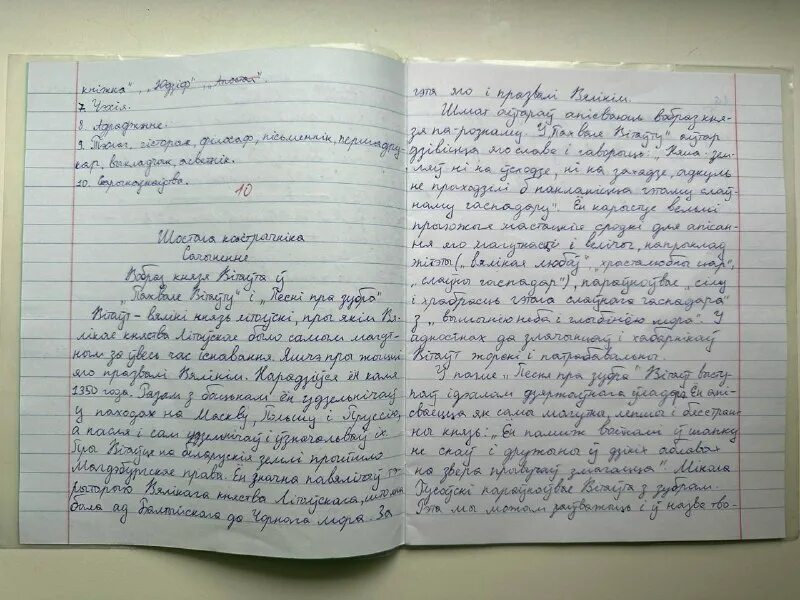 кніжка", "Юдзіф", "Апостал".
7. Чэхія.
8. Адраджэнне.
9. Тэолаг, гісторык, філосаф, пісьменнік, першадру-
кар, выкладчык, асветнік.
10. Скарыназнаўства.
10
Шостага кастрычніка
Сачыненне
Вобраз князя Вітаўта ў
"Пахвале Вітаўту" і "Песні пра зубра"
Вітаўт - вялікі князь літоўскі, пры якім Вя-
лікае княства Літоўскае было самым магут-
ным за ўвесь час існавання. Яшчэ пры жыцці
яго празвалі Вялікім. Нарадзіўся ён каля
1350 года. Разам з бацькам ён удзельнічаў
у паходах на Маскву, Польшу і Прусію,
а пасля і сам удзельнічаў і ўзначальваў іх.
Пры Вітаўце на беларускія землі прыйшло
Магдэбургскае права. Ён значна павялічыў тэ-
рыторыю Вялікага княства Літоўскага,
была ад Балтыйскага да Чорнага мора. За
гэта яго і празвалі Вялікім.
Шмат аўтараў апісваюць вобраз кня-
зя па-рознаму. У "Пахвале Вітаўту" аўтар
дзівіцца яго славе і гаворыць: "Няма зям-
ляў ні на ўсходзе, ні на захадзе, адкуль
не прыходзілі б пакланіцца гэтаму слаў-
наму гаспадару". Ён карыстае вельмі
прыгожыя мастацкія сродкі для апісан-
ня яго магутнасці і велічы, напрыклад
эпітэты ("вялікая любоў", "хрысталюбівы цар",
"слаўны гаспадар"), параўноўвае "сілу
і храбрасць гэтага слаўнага гаспадара"
з "вышынёю неба і глыбінёю мора". У
адносінах да злачынцаў і хабарнікаў
Вітаўт жорсткі і патрабавальны.
У паэме "Песня пра зубра" Вітаўт высту-
пае ідэалам дзяржаўнага ўладара. Ён апі-
сваецца як самы магутны, лепшы і бесстраш-
ны князь: "Ён паміж воямі ў шапку
не спаў і дружыны ў дзікіх аблавах
на звера прывучаў змагацца". Мікола
Гусоўскі параўноўвае Вітаўта з зубрам.
Гэта мы можам заўважыць і ў назве тво-